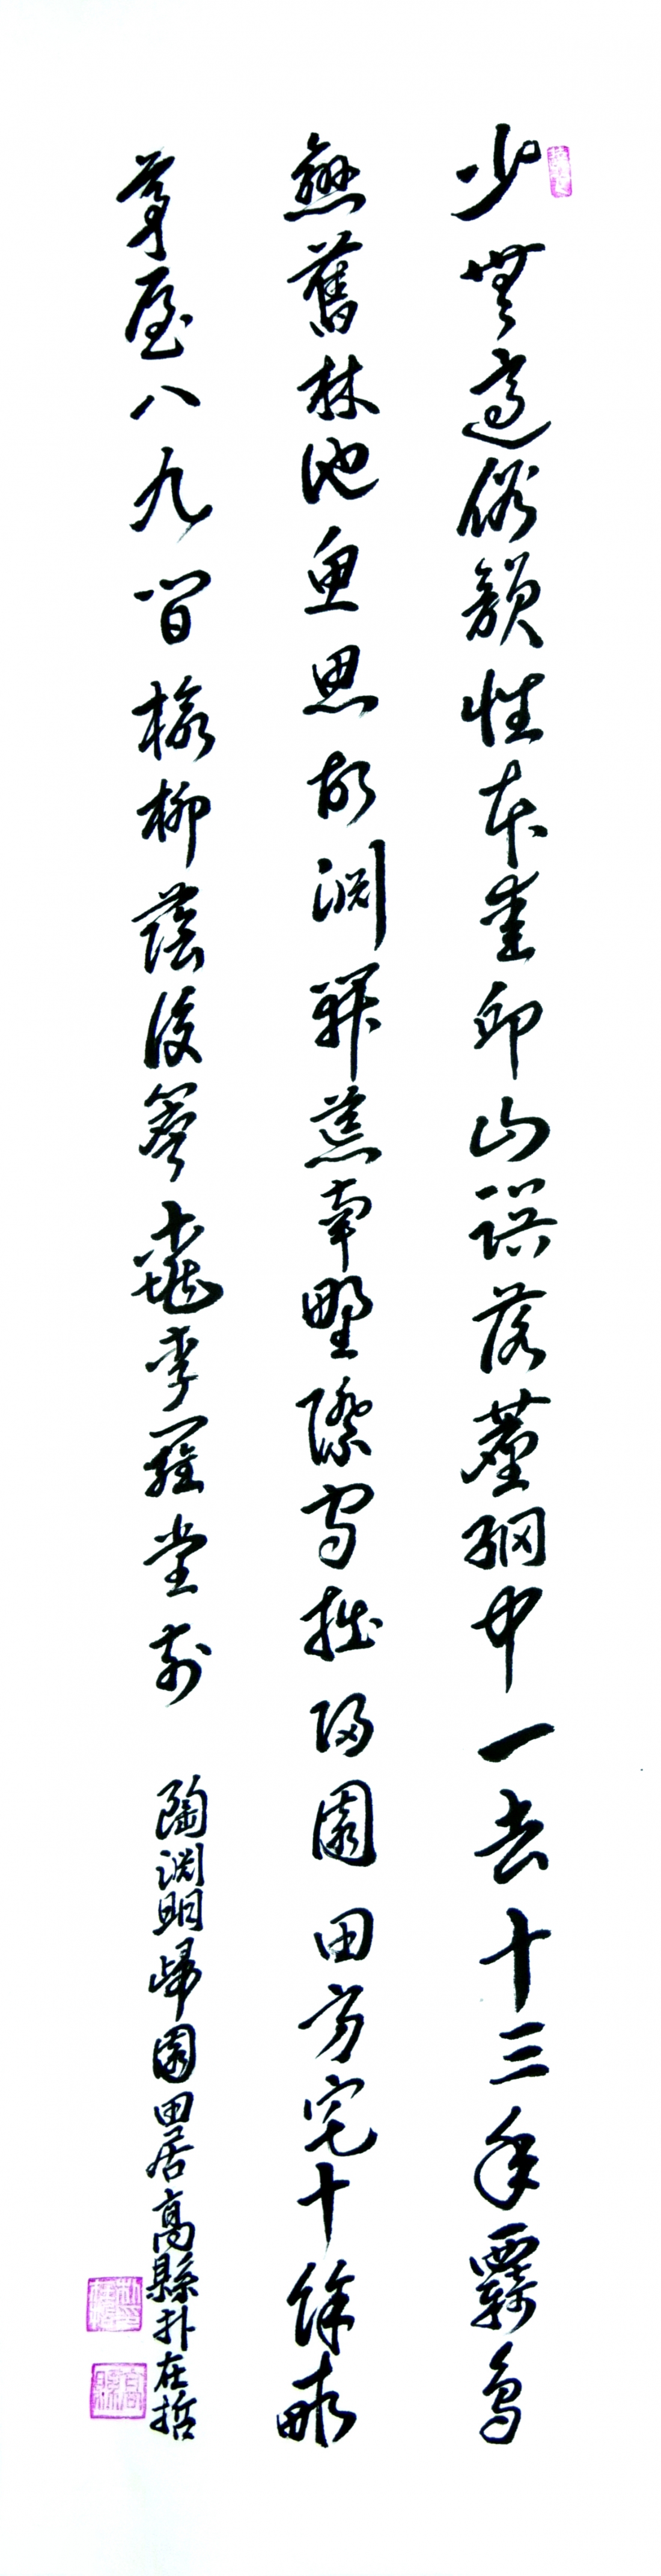 少無適俗韻性本愛邱山誤落塵網中一去十三年羈鳥
戀舊林池魚思故淵開荒南野際守拙歸園田方宅十餘畝
茅屋八九間榆柳蔭後簷桃李羅堂前
陶淵明歸園田居高縣朴在哲